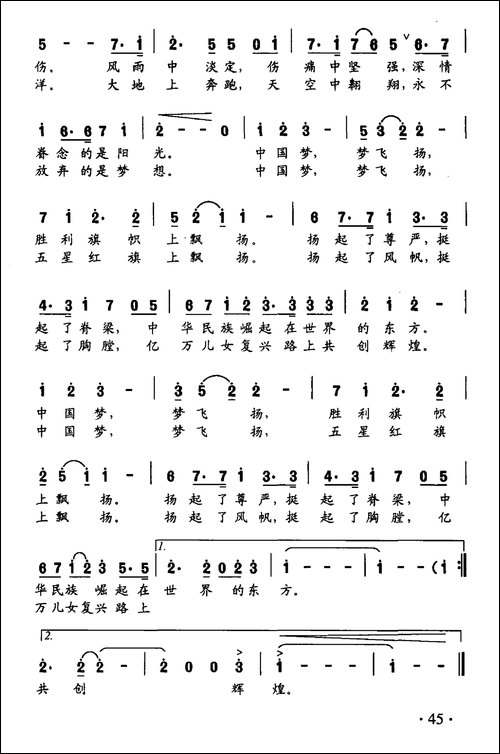 5 - - 7·1 | 2· 5 5 0 1 | 7·1 7 6 5 ∨ 6·7 |
伤。 风雨中 淡定, 伤 痛中坚强,深情
洋。 大地上 奔跑, 天 空中翱翔,永不
1 6·6 7 1 | 2 - - 0 | 1 2 3 - | 5 3 2 2 - |
眷念的是阳 光。 中国梦, 梦飞扬,
放弃的是梦 想。 中国梦, 梦飞扬,
7 1 2· 2 | 5 2 1 1 - | 6 7·7 1 3·3 |
胜利旗帜 上飘扬。 扬起了尊严,挺
五星红旗 上飘扬。 扬起了风帆,挺
4·3 1 7 0 5 | 6 7 1 2 3·3 3 3 | 2 1 2 - |
起了脊梁, 中 华民族崛起在世界 的东方。
起了胸膛, 亿 万儿女复兴路上共 创辉煌。
1 2 3 - | 3 5 2 2 - | 7 1 2· 2 |
中国梦, 梦飞扬, 胜利旗帜
中国梦, 梦飞扬, 五星红旗
2 5 1 1 - | 6 7·7 1 3·3 | 4·3 1 7 0 5 |
上飘扬。 扬起了尊严,挺 起了脊梁, 中
上飘扬。 扬起了风帆,挺 起了胸膛, 亿
1.
6 7 1 1 2 3 5·5 | 2· 2 0 2 3 | 1 - - - | 1 - - (1 :|
华民族 崛起在 世 界 的东 方。
万儿女复兴路上
2.
2· 2 2 - | 2 - - - | 2 0 0 3 | 1 - - - | 1 - - - ‖
共 创 辉 煌。
· 45 ·